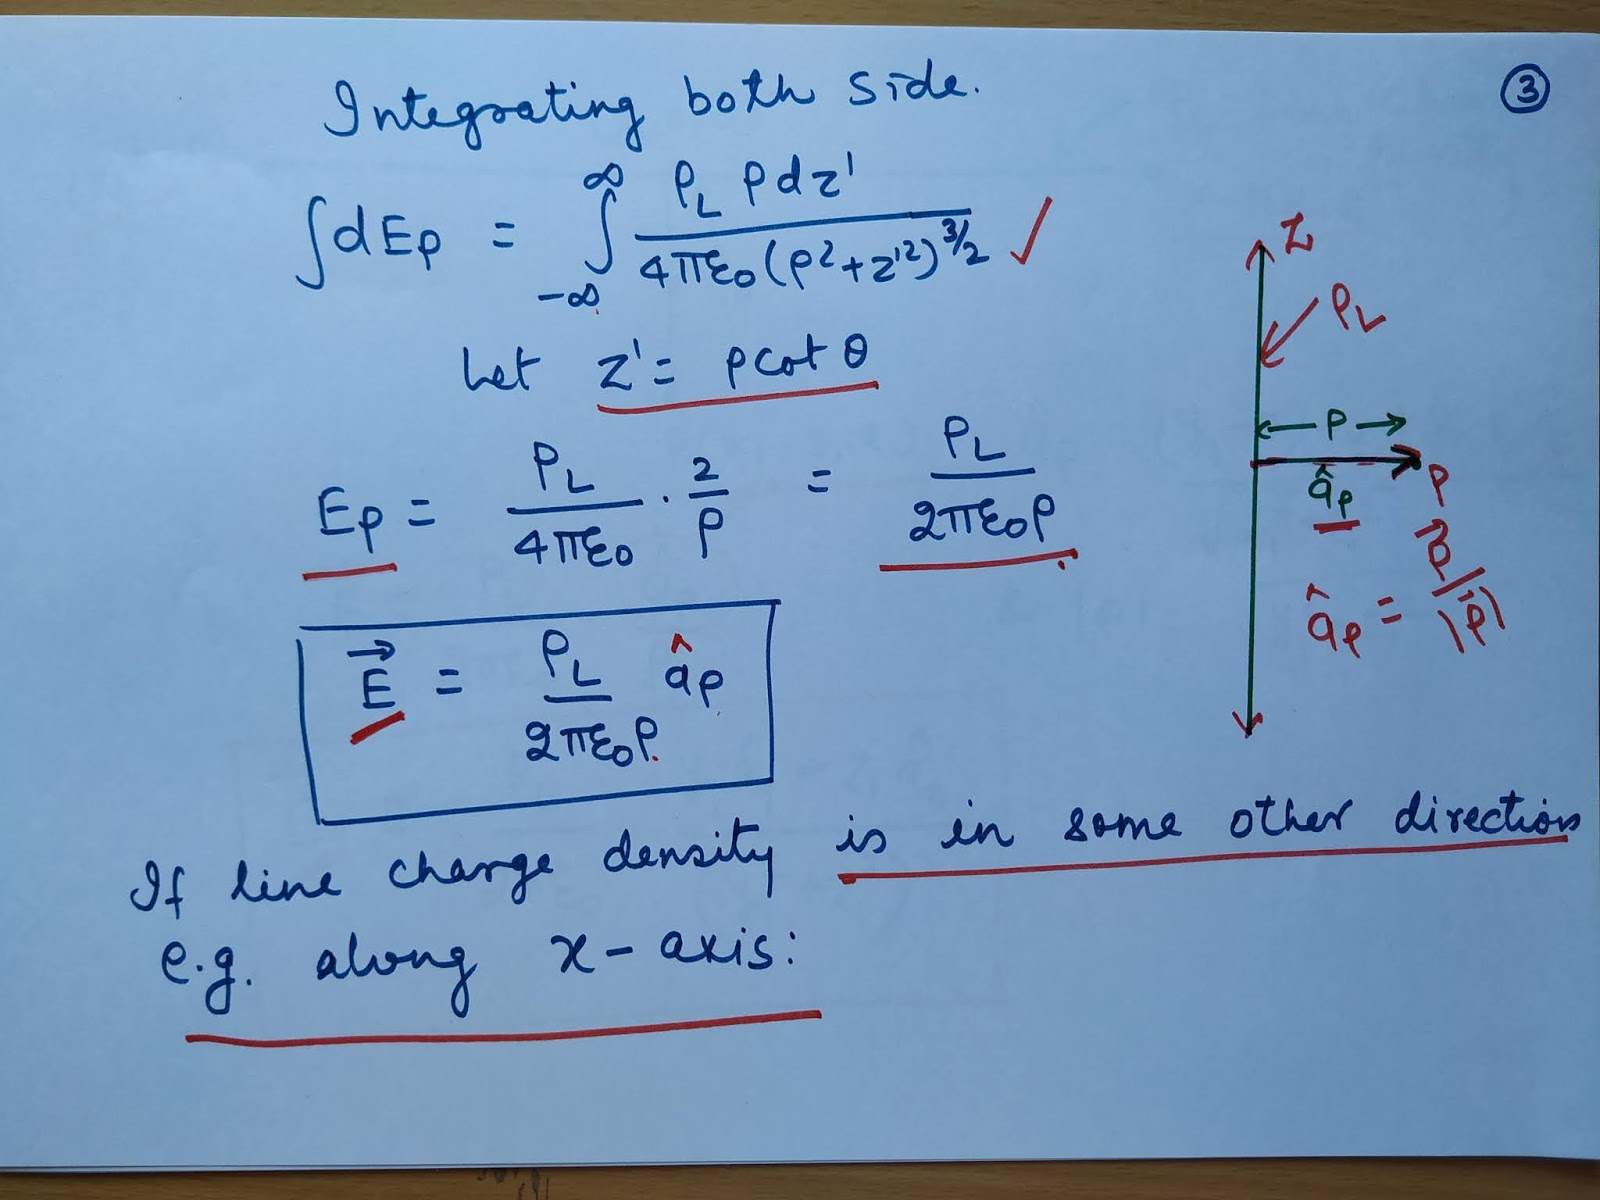 3
Integrating both side.
∫dEρ = ∫_{-∞}^{∞} ρL ρdz' / 4πε0(ρ²+z'²)^{3/2} ✓
Let z' = ρcot θ
Eρ = ρL/4πε0 · 2/ρ = ρL/2πε0ρ
E⃗ = ρL/2πε0ρ âρ
If line charge density is in some other direction
e.g. along x-axis:
Z
ρL
ρ
âρ P
âρ = ρ⃗/|ρ⃗|